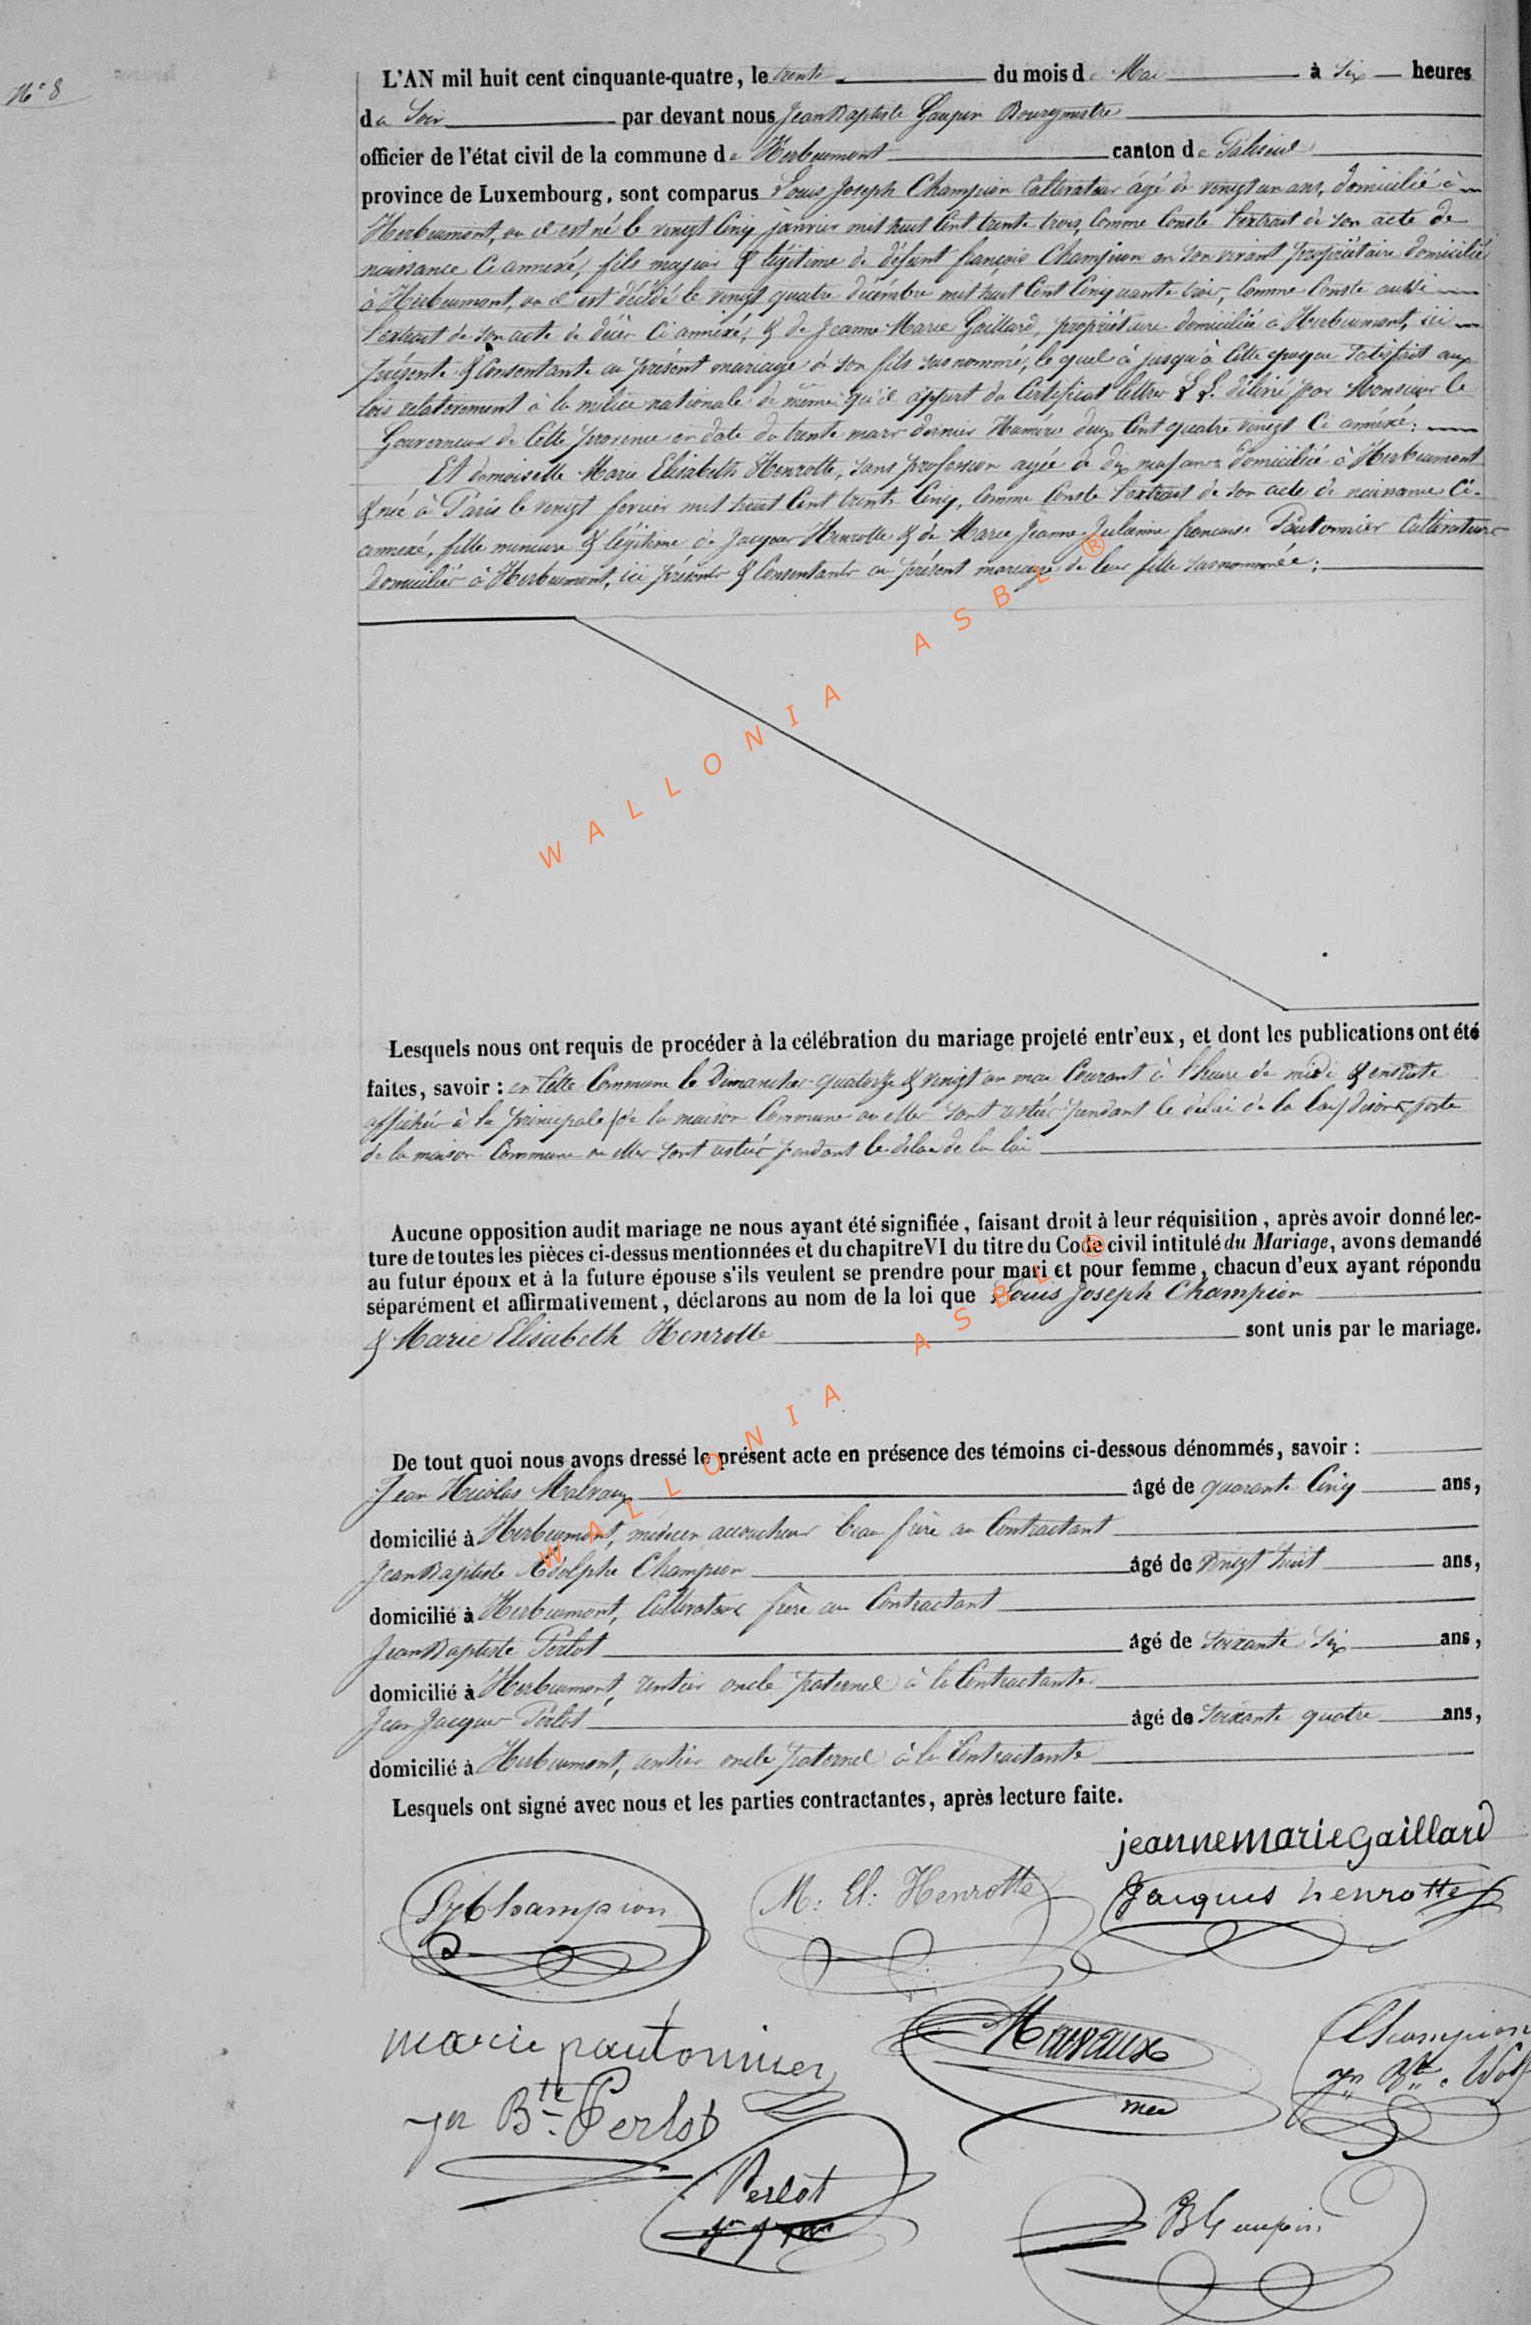 N° 8
L'AN mil huit cent cinquante-quatre, le trente du mois de Mai à Six heures
du Soir par devant nous Jean Baptiste Gaupin Bourgmestre
officier de l'état civil de la commune de Herbeumont canton de Paliseul
province de Luxembourg, sont comparus Louis Joseph Champion Cultivateur âgé de vingt un ans, domicilié à
Herbeumont, ou il est né le vingt Cinq janvier mil huit Cent trente trois, Comme Conste l'extrait de son acte de
naissance Ci annexé, fils majeur & légitime de défunt françois Champion en son vivant propriétaire domicilié
à Herbeumont, ou il est décédé le vingt quatre décembre mil huit Cent Cinquante trois, Comme Conste aussi
l'extrait de son acte de décès Ci annexé, & de Jeanne Marie Gaillard, propriétaire domiciliée à Herbeumont, ici
présente & Consentante au présent mariage de son fils susnommé, le quel à jusqu'à Cette époque Satisfait aux
lois relativement à la milice nationale de même qu'il appert du Certificat lettre L L. délivré par Monsieur le
Gouverneur de Cette province en date du trente mars dernier Numéro deux Cent quatre vingt Ci annéxé;
Et demoiselle Marie Elisabeth Henrotte, sans profession agée de dix neuf ans domiciliée à Herbeumont
& née à Paris le vingt fevrier mil huit Cent trente Cinq, Comme Conste l'extrait de son acte de naissance Ci-
annexé, fille mineure & légitime de Jacques Henrotte & de Marie Jeanne Julienne francoise Pautonnier Cultivateurs
domiciliés à Herbeumont, ici présents & Consentants au présent mariage de leur fille susnommée;
WALLONIA ASBL ®
Lesquels nous ont requis de procéder à la célébration du mariage projeté entr'eux, et dont les publications ont été
faites, savoir : en Cette Commune le Dimanches quatorze & vingt un mai Courant à l'heure de midi & ensuite
affichées à la principale (de la maison Commune ou elles sont restées pendant le délai de la loi) disons porte
de la maison Commune ou elles sont restées pendant le délai de la loi
Aucune opposition audit mariage ne nous ayant été signifiée, faisant droit à leur réquisition, après avoir donné lec-
ture de toutes les pièces ci-dessus mentionnées et du chapitre VI du titre du Code civil intitulé du Mariage, avons demandé
au futur époux et à la future épouse s'ils veulent se prendre pour mari et pour femme, chacun d'eux ayant répondu
séparément et affirmativement, déclarons au nom de la loi que Louis Joseph Champion
& Marie Elisabeth Henrotte sont unis par le mariage.
WALLONIA ASBL ®
De tout quoi nous avons dressé le présent acte en présence des témoins ci-dessous dénommés, savoir :
Jean Nicolas Malvaux âgé de quarante Cinq ans,
domicilié à Herbeumont, médecin accoucheur beau frère au Contractant
Jean Baptiste Adolphe Champion âgé de vingt huit ans,
domicilié à Herbeumont, Cultivateur frère au Contractant
Jean Baptiste Perlot âgé de soixante six ans,
domicilié à Herbeumont, rentier oncle paternel à la Contractante
Jean Jacques Perlot âgé de soixante quatre ans,
domicilié à Herbeumont, rentier oncle paternel à la Contractante
Lesquels ont signé avec nous et les parties contractantes, après lecture faite.
jeanne marie gaillard
Champion
M: El: Henrotte
Jacques henrotte
marie pautonnier
med
Champion
Jn Bte Perlot
Perlot